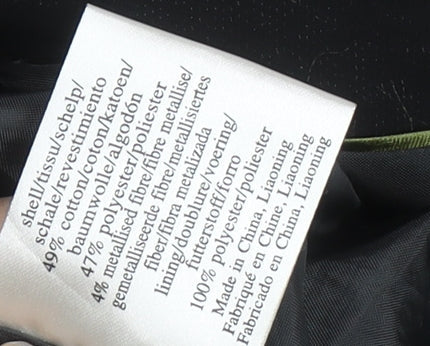 shell/tissu/schelp/
schale/revestimiento
49% cotton/coton/katoen/
baumwolle/algodón
47% polyester/poliester
4% metallised fibre/fibre metallise/
gemetalliseerde fibre/metallisiertes
fiber/fibra metalizada
lining/doublure/voering/
futterstoff/forro
100% polyester/poliester
Made in China, Liaoning
Fabriqué en Chine, Liaoning
Fabricado en China, Liaoning